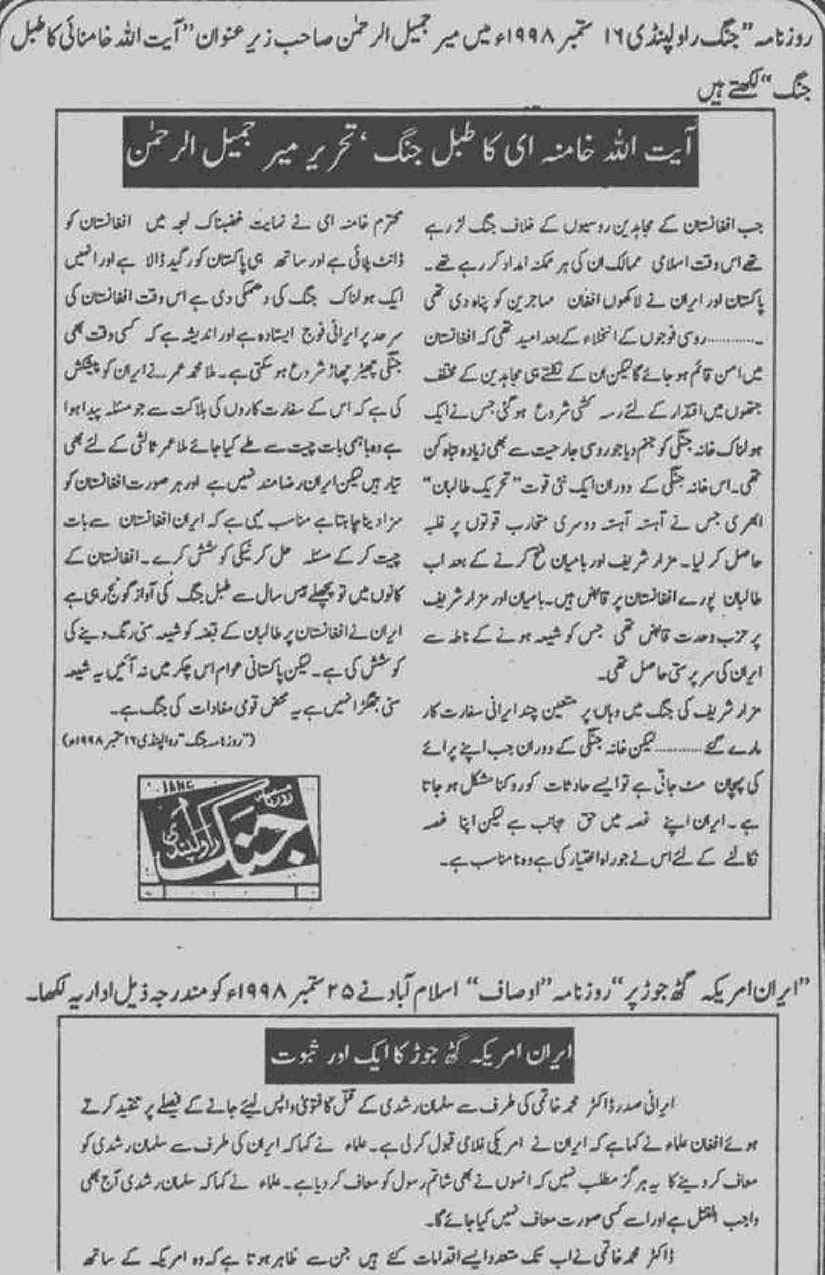 روزنامہ "جنگ راولپنڈی ۱۶ ستمبر ۱۹۹۸ء میں میر جمیل الرحمٰن صاحب زیر عنوان "آیت اللہ خامنائی کا طبل
جنگ" لکھتے ہیں
آیت اللہ خامنہ ای کا طبل جنگ ' تحریر میر جمیل الرحمٰن
جب افغانستان کے مجاہدین روسیوں کے خلاف جنگ لڑ رہے
تھے اس وقت اسلامی ممالک ان کی ہر ممکنہ امداد کر رہے تھے۔
پاکستان اور ایران نے لاکھوں افغان مہاجرین کو پناہ دی تھی
۔.......... روسی فوجوں کے انخلاء کے بعد امید تھی کہ افغانستان
میں امن قائم ہو جائے گا لیکن ان کے نکلتے ہی مجاہدین کے مختلف
جتھوں میں اقتدار کے لئے رسہ کشی شروع ہو گئی جس نے ایک
ہولناک خانہ جنگی کو جنم دیا جو روسی جارحیت سے بھی زیادہ تباہ کن
تھی۔ اس خانہ جنگی کے دوران ایک نئی قوت "تحریک طالبان"
ابھری جس نے آہستہ آہستہ دوسری متحارب قوتوں پر غلبہ
حاصل کر لیا۔ مزار شریف اور بامیان فتح کرنے کے بعد اب
طالبان پورے افغانستان پر قابض ہیں۔ بامیان اور مزار شریف
پر حزب وحدت قابض تھی جس کو شیعہ ہونے کے ناطہ سے
ایران کی سرپرستی حاصل تھی۔
مزار شریف کی جنگ میں وہاں پر متعین چند ایرانی سفارت کار
مارے گئے .......... لیکن خانہ جنگی کے دوران جب اپنے پرائے
کی پہچان مٹ جاتی ہے تو ایسے حادثات کو روکنا مشکل ہو جاتا
ہے۔ ایران اپنے غصہ میں حق بجانب ہے لیکن اپنا غصہ
نکالنے کے لئے اس نے جو راہ اختیار کی ہے وہ نا مناسب ہے۔
محترم خامنہ ای نے نہایت غضبناک لہجہ میں افغانستان کو
ڈانٹ پلائی ہے اور ساتھ ہی پاکستان کو رگید ڈالا ہے اور انہیں
ایک ہولناک جنگ کی دھمکی دی ہے اس وقت افغانستان کی
سرحد پر ایرانی فوج ایستادہ ہے اور اندیشہ ہے کہ کسی وقت بھی
جنگی چھیڑ چھاڑ شروع ہو سکتی ہے۔ ملا محمد عمر نے ایران کو پیشکش
کی ہے کہ اس کے سفارت کاروں کی ہلاکت سے جو مسئلہ پیدا ہوا
ہے وہ باہمی بات چیت سے طے کیا جائے ملا عمر ثالثی کے لئے بھی
تیار ہیں لیکن ایران رضامند نہیں ہے اور ہر صورت افغانستان کو
سزا دینا چاہتا ہے مناسب یہی ہے کہ ایران افغانستان سے بات
چیت کر کے مسئلہ حل کرنیکی کوشش کرے۔ افغانستان کے
کانوں میں تو پچھلے بیس سال سے طبل جنگ کی آواز گونج رہی ہے
ایران نے افغانستان پر طالبان کے قبضہ کو شیعہ سنی رنگ دینے کی
کوشش کی ہے۔ لیکن پاکستانی عوام اس چکر میں نہ آئیں یہ شیعہ
سنی جھگڑا نہیں ہے یہ محض قومی مفادات کی جنگ ہے۔
("روزنامہ جنگ" راولپنڈی ۱۶ ستمبر ۱۹۹۸ء)
JANG
روزنامہ
جنگ
راولپنڈی
"ایران امریکہ گٹھ جوڑ پر" روزنامہ "اوصاف" اسلام آباد نے ۲۵ ستمبر ۱۹۹۸ء کو مندرجہ ذیل اداریہ لکھا۔
ایران امریکہ گٹھ جوڑ کا ایک اور ثبوت
ایرانی صدر ڈاکٹر محمد خاتمی کی طرف سے سلمان رشدی کے قتل کا فتویٰ واپس لیئے جانے کے فیصلے پر تنقید کرتے
ہوئے افغان علماء نے کہا ہے کہ ایران نے امریکی غلامی قبول کر لی ہے۔ علماء نے کہا کہ ایران کی طرف سے سلمان رشدی کو
معاف کر دینے کا یہ ہرگز مطلب نہیں کہ انہوں نے بھی شاتم رسول کو معاف کر دیا ہے۔ علماء نے کہا کہ سلمان رشدی آج بھی
واجب القتل ہے اور اسے کسی صورت معاف نہیں کیا جائے گا۔
ڈاکٹر محمد خاتمی نے اب تک متعدد ایسے اقدامات کئے ہیں جن سے ظاہر ہوتا ہے کہ وہ امریکہ کے ساتھ